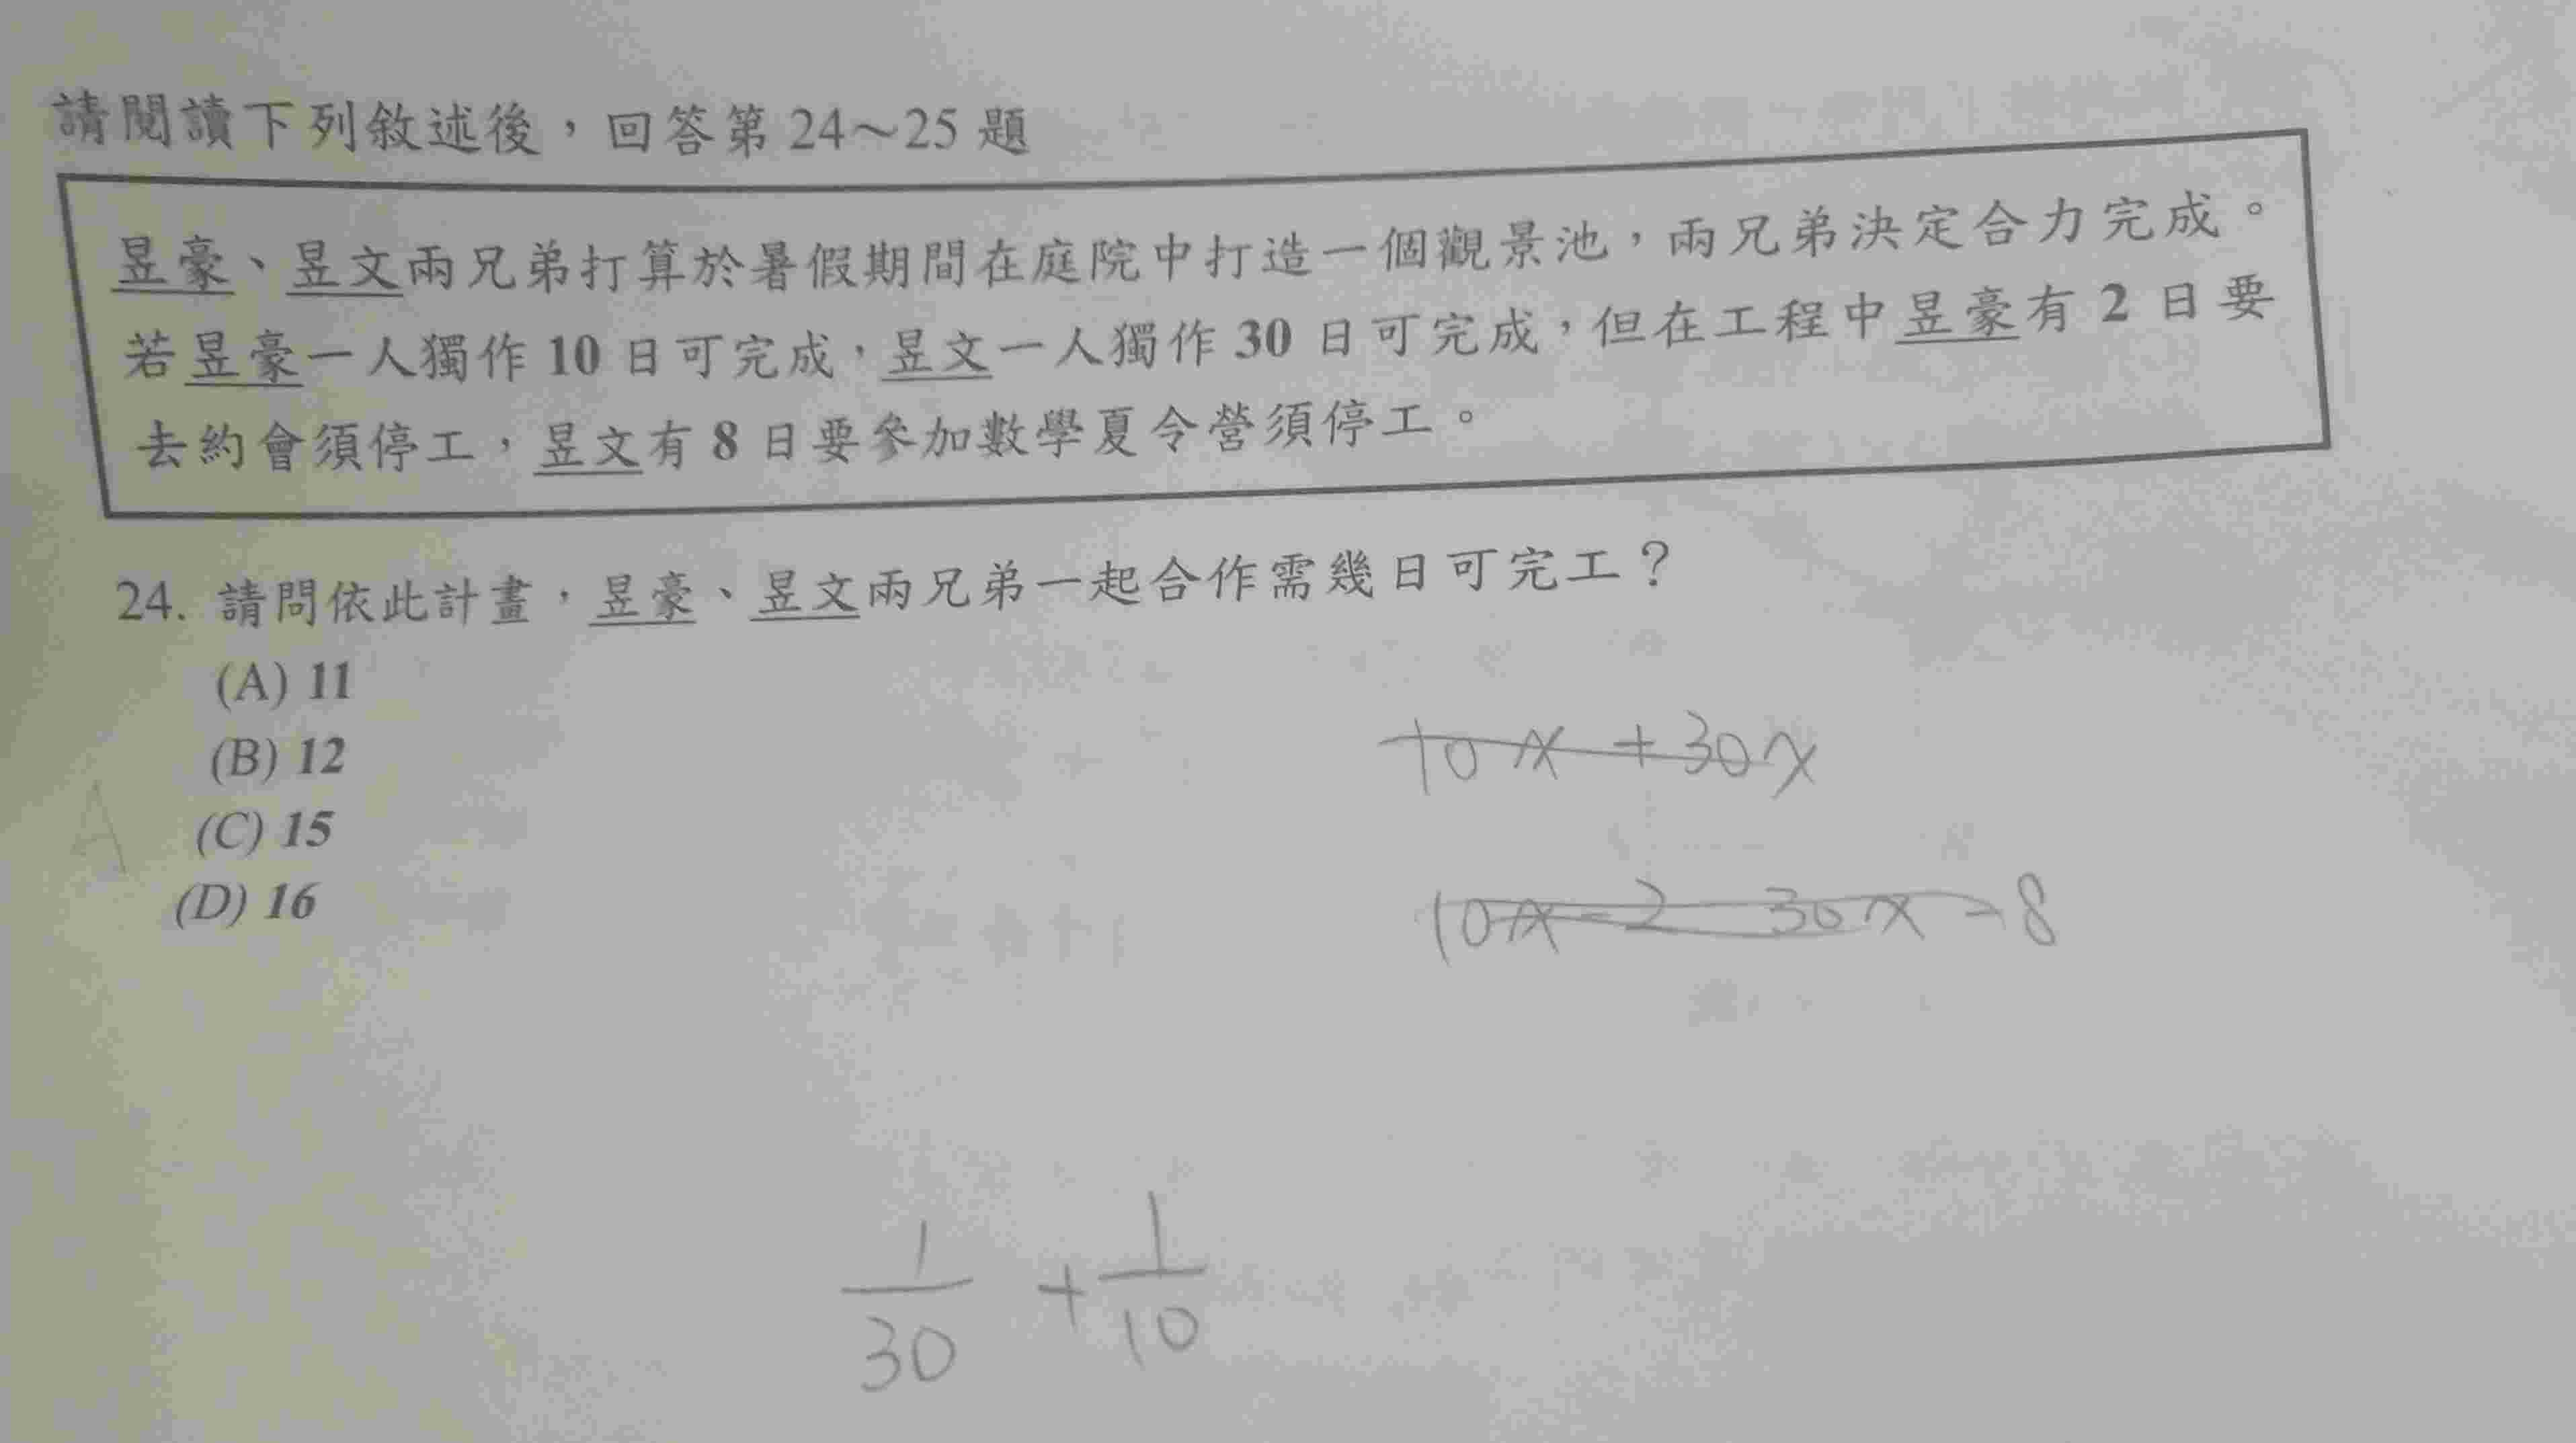 請閱讀下列敘述後，回答第 24～25 題
昱豪、昱文兩兄弟打算於暑假期間在庭院中打造一個觀景池，兩兄弟決定合力完成。
若昱豪一人獨作 10 日可完成，昱文一人獨作 30 日可完成，但在工程中昱豪有 2 日要
去約會須停工，昱文有 8 日要參加數學夏令營須停工。
24. 請問依此計畫，昱豪、昱文兩兄弟一起合作需幾日可完工？
(A) 11
(B) 12
(C) 15
(D) 16
A
10x + 30x
10x - 2 30x - 8
1/30 + 1/10